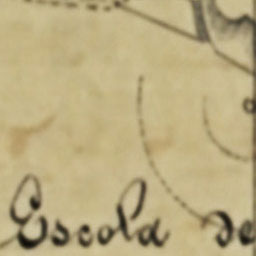 Escola de